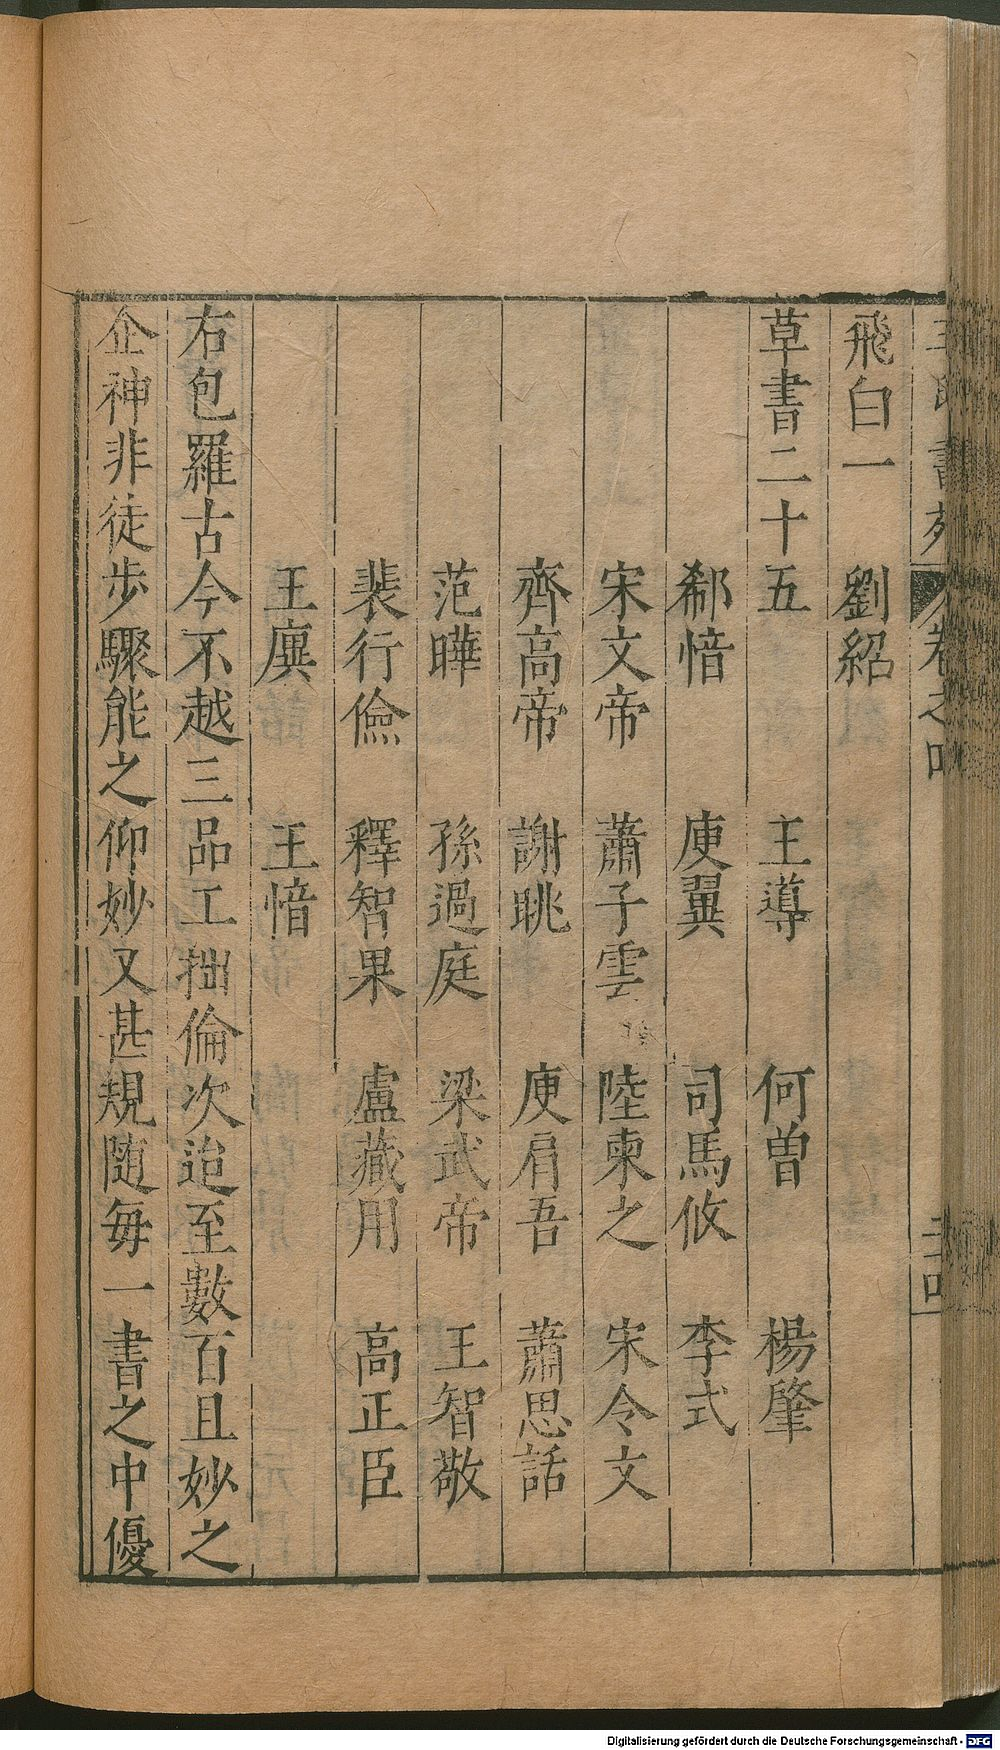 書苑 卷之四
飛白一 劉紹
草書二十五 王導 何曽 楊肇
郗愔 庾翼 司馬攸 李式
宋文帝 蕭子雲 陸柬之 宋令文
齊高帝 謝眺 庾肩吾 蕭思話
范曄 孫過庭 梁武帝 王智敬
裴行儉 釋智果 盧藏用 高正臣
王廙 王愔
右包羅古今不越三品工拙倫次迨至數百且妙之
企神非徒步驟能之仰妙又甚規随毎一書之中優
Digitalisierung gefördert durch die Deutsche Forschungsgemeinschaft - DFG